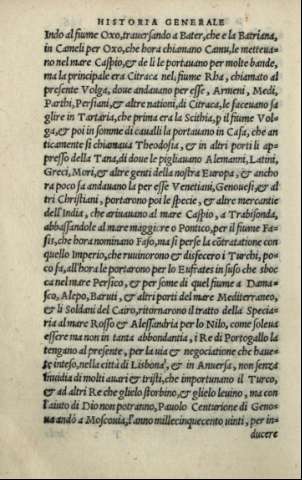 HISTORIA GENERALE
Indo al fiume Oxo, trauersando a Bater, che e la Batriana,
in Cameli per Oxo, che hora chianano Canu, le metteua-
no nel mare Caspio, & de li le portauano per molte bande,
ma la principale era Citraca nel fiume Rha, chiamato al
presente Volga, doue andauano per esse, Armeni, Medi,
Parthi, Persiani, & altre nationi, di Citraca, le faceuano sa
glire in Tartaria, che prima era la Scithia, p il fiume Vol-
ga, & poi in somme di caualli la portauano in Cafa, che an
ticamente si chiamaua Theodosia, & in altri porti li ap-
presso della Tana, di doue le pigliauano Alemanni, Latini,
Greci, Mori, & altre genti della nostra Europa, & ancho
ra poco fa andauano la per esse Venetiani, Genouesi, & al
tri Christiani, portarono poi le specie, & altre mercantie
dell'India, che ariuauano al mare Caspio, a Trabisonda,
abbassandole al mare maggiore o Pontico, per il fiume Fa-
sis, che hora nominano Faso, ma si perse la cōtratatione con
quello Imperio, che ruuinorono & disfecero i Turchi, po-
co fa, all'hora le portarono per lo Eufrates in suso che sboc
ca nel mare Persico, & per some di quel fiume a Dama-
sco, Alepo, Baruti, & altri porti del mare Mediterraneo,
& li Soldani del Cairo, ritornarono il tratto della Specia-
ria al mare Rosso & Alessandria per lo Nilo, come soleua
essere ma non in tanta abbondantia, i Re di Portogallo la
tengano al presente, per la uia & negociatione che haue-
te inteso, nella città di Lisbona, & in Anuersa, non senza
inuidia di molti auari & tristi, che importunano il Turco,
& ad altri Re che glielo storbino, & glielo leuino, ma con
l'aiuto di Dio non potranno, Pauolo Centurione di Geno-
ua andò a Moscouia, l'anno millecinquecento uinti, per in-
ducere